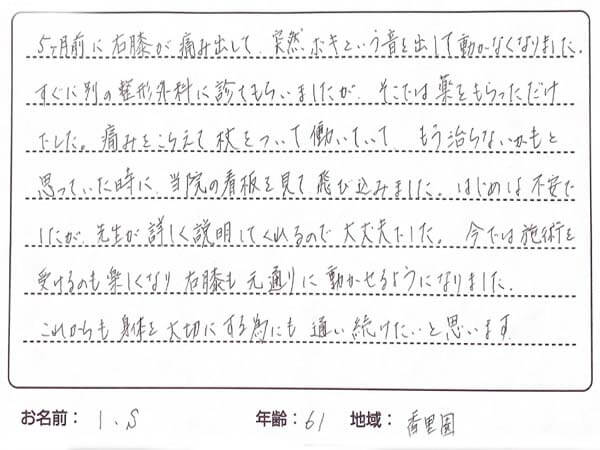 5ヶ月前に右膝が痛み出して、突然ボキという音を出して動かなくなりました。
すぐに別の整形外科に診てもらいましたが、そこでは薬をもらっただけ
でした。痛みをこらえて杖をついて働いていて もう治らないかもと
思っていた時に、当院の看板を見て飛び込みました。はじめは不安で
したが、先生が詳しく説明してくれるので大丈夫でした。今では施術を
受けるのも楽しくなり 右膝も元通りに動かせるようになりました。
これからも身体を大切にする為にも通い続けたいと思います
お名前: I.S 年齢: 61 地域: 香里園